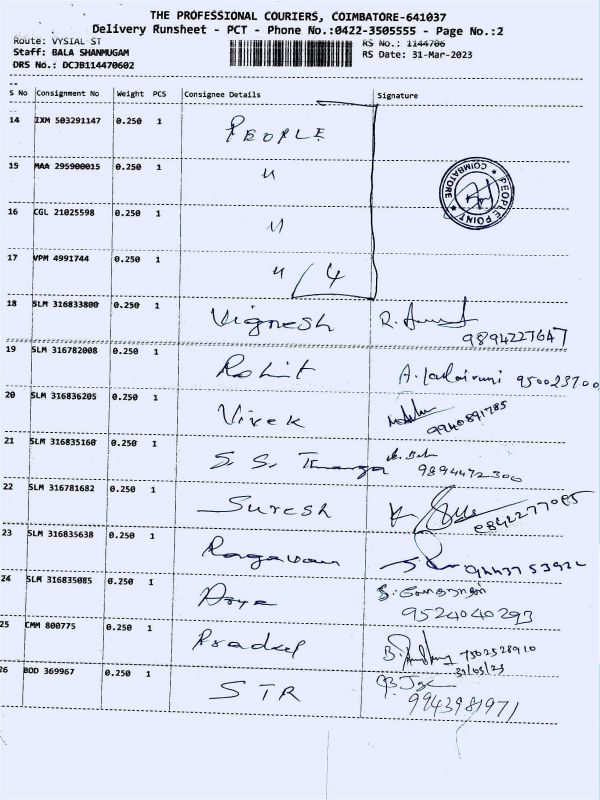 THE PROFESSIONAL COURIERS, COIMBATORE-641037
Delivery Runsheet - PCT - Phone No.:0422-3505555 - Page No.:2
Route: VYSIAL ST
RS No.: 1144706
Staff: BALA SHANMUGAM
RS Date: 31-Mar-2023
DRS No.: DCJB114470602
S No Consignment No Weight PCS Consignee Details Signature
14 IXM 503291147 0.250 1 PEOPLE
15 MAA 295900015 0.250 1 "
COIMBATORE ★ PEOPLE POINT ★
16 CGL 21025598 0.250 1 "
17 VPM 4991744 0.250 1 " / 4
18 SLM 316833800 0.250 1 Vignesh R.
9894227647
19 SLM 316782008 0.250 1 Rohit A. 950023700
20 SLM 316836205 0.250 1 Vivek
9940891785
21 SLM 316835160 0.250 1 S. S. Thanga
9894472300
22 SLM 316781682 0.250 1 Suresh
9842277085
23 SLM 316835638 0.250 1 Ragavan
24 SLM 316835085 0.250 1 S.
9524040293
25 CMM 800775 0.250 1 Pradeep B. 7502528910
31/03/23
26 BOD 369967 0.250 1 STR
9943981971